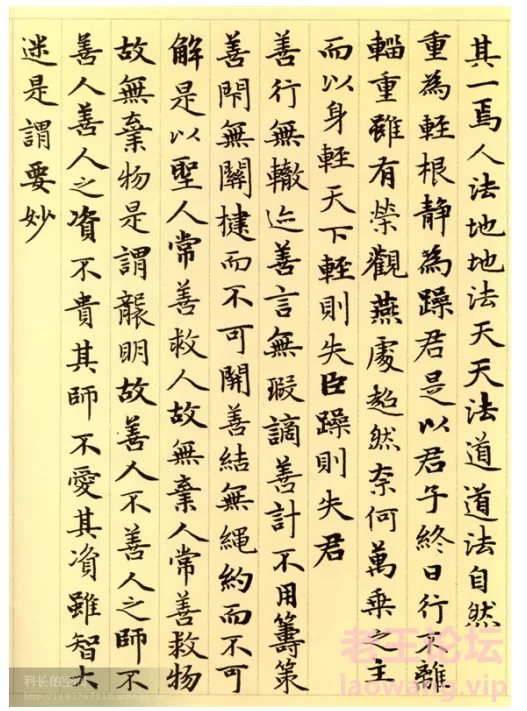 其一焉人法地地法天天法道道法自然
重為輕根静為躁君是以君子終日行不離
輜重雖有榮觀燕處超然奈何萬乘之主
而以身輕天下輕則失臣躁則失君
善行無轍迹善言無瑕謫善計不用籌策
善閇無關楗而不可開善結無繩約而不可
解是以聖人常善救人故無棄人常善救物
故無棄物是謂襲明故善人不善人之師不
善人善人之資不貴其師不愛其資雖智大
迷是謂要妙
老王论坛
laowang.vip
科长的空间